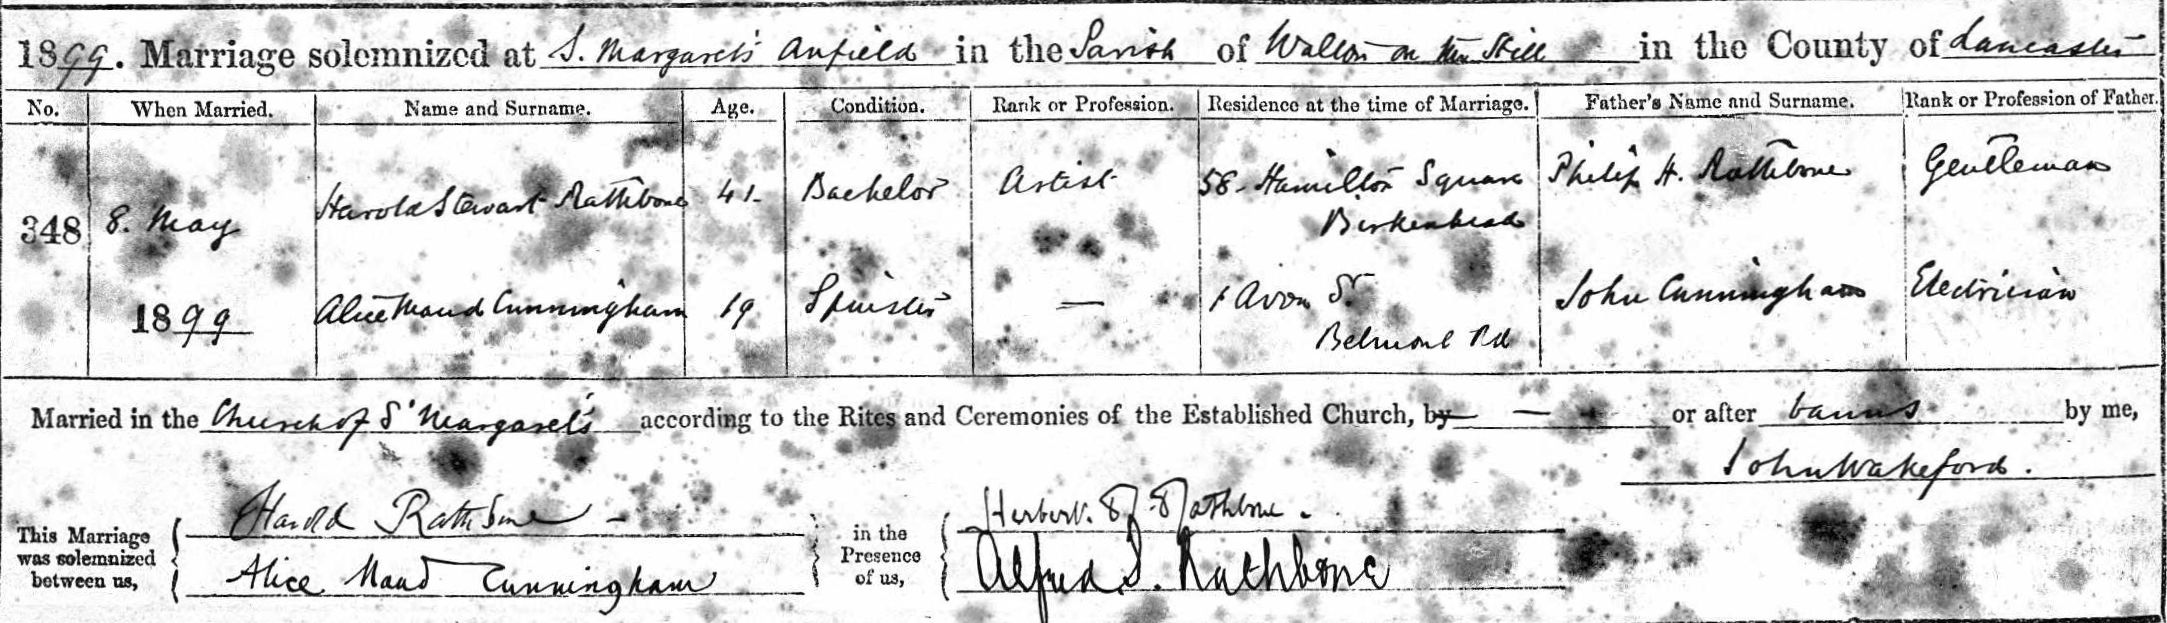 1899. Marriage solemnized at S. Margaret's Anfield in the Parish of Walton on the Hill in the County of Lancaster
No. When Married. Name and Surname. Age. Condition. Rank or Profession. Residence at the time of Marriage. Father's Name and Surname. Rank or Profession of Father.
348 8. May 1899
Harold Stewart Rathbone 41 Bachelor Artist 58 Hamilton Square Philip H. Rathbone Gentleman
Birkenhead
Alice Maud Cunningham 19 Spinster — 1 Avon St John Cunningham Electrician
Belmont Rd
Married in the Church of St Margaret's according to the Rites and Ceremonies of the Established Church, by — or after banns by me,
John Wakeford.
This Marriage was solemnized between us,
Harold Rathbone
Alice Maud Cunningham
in the Presence of us,
Herbert. R. Rathbone.
Alfred S. Rathbone